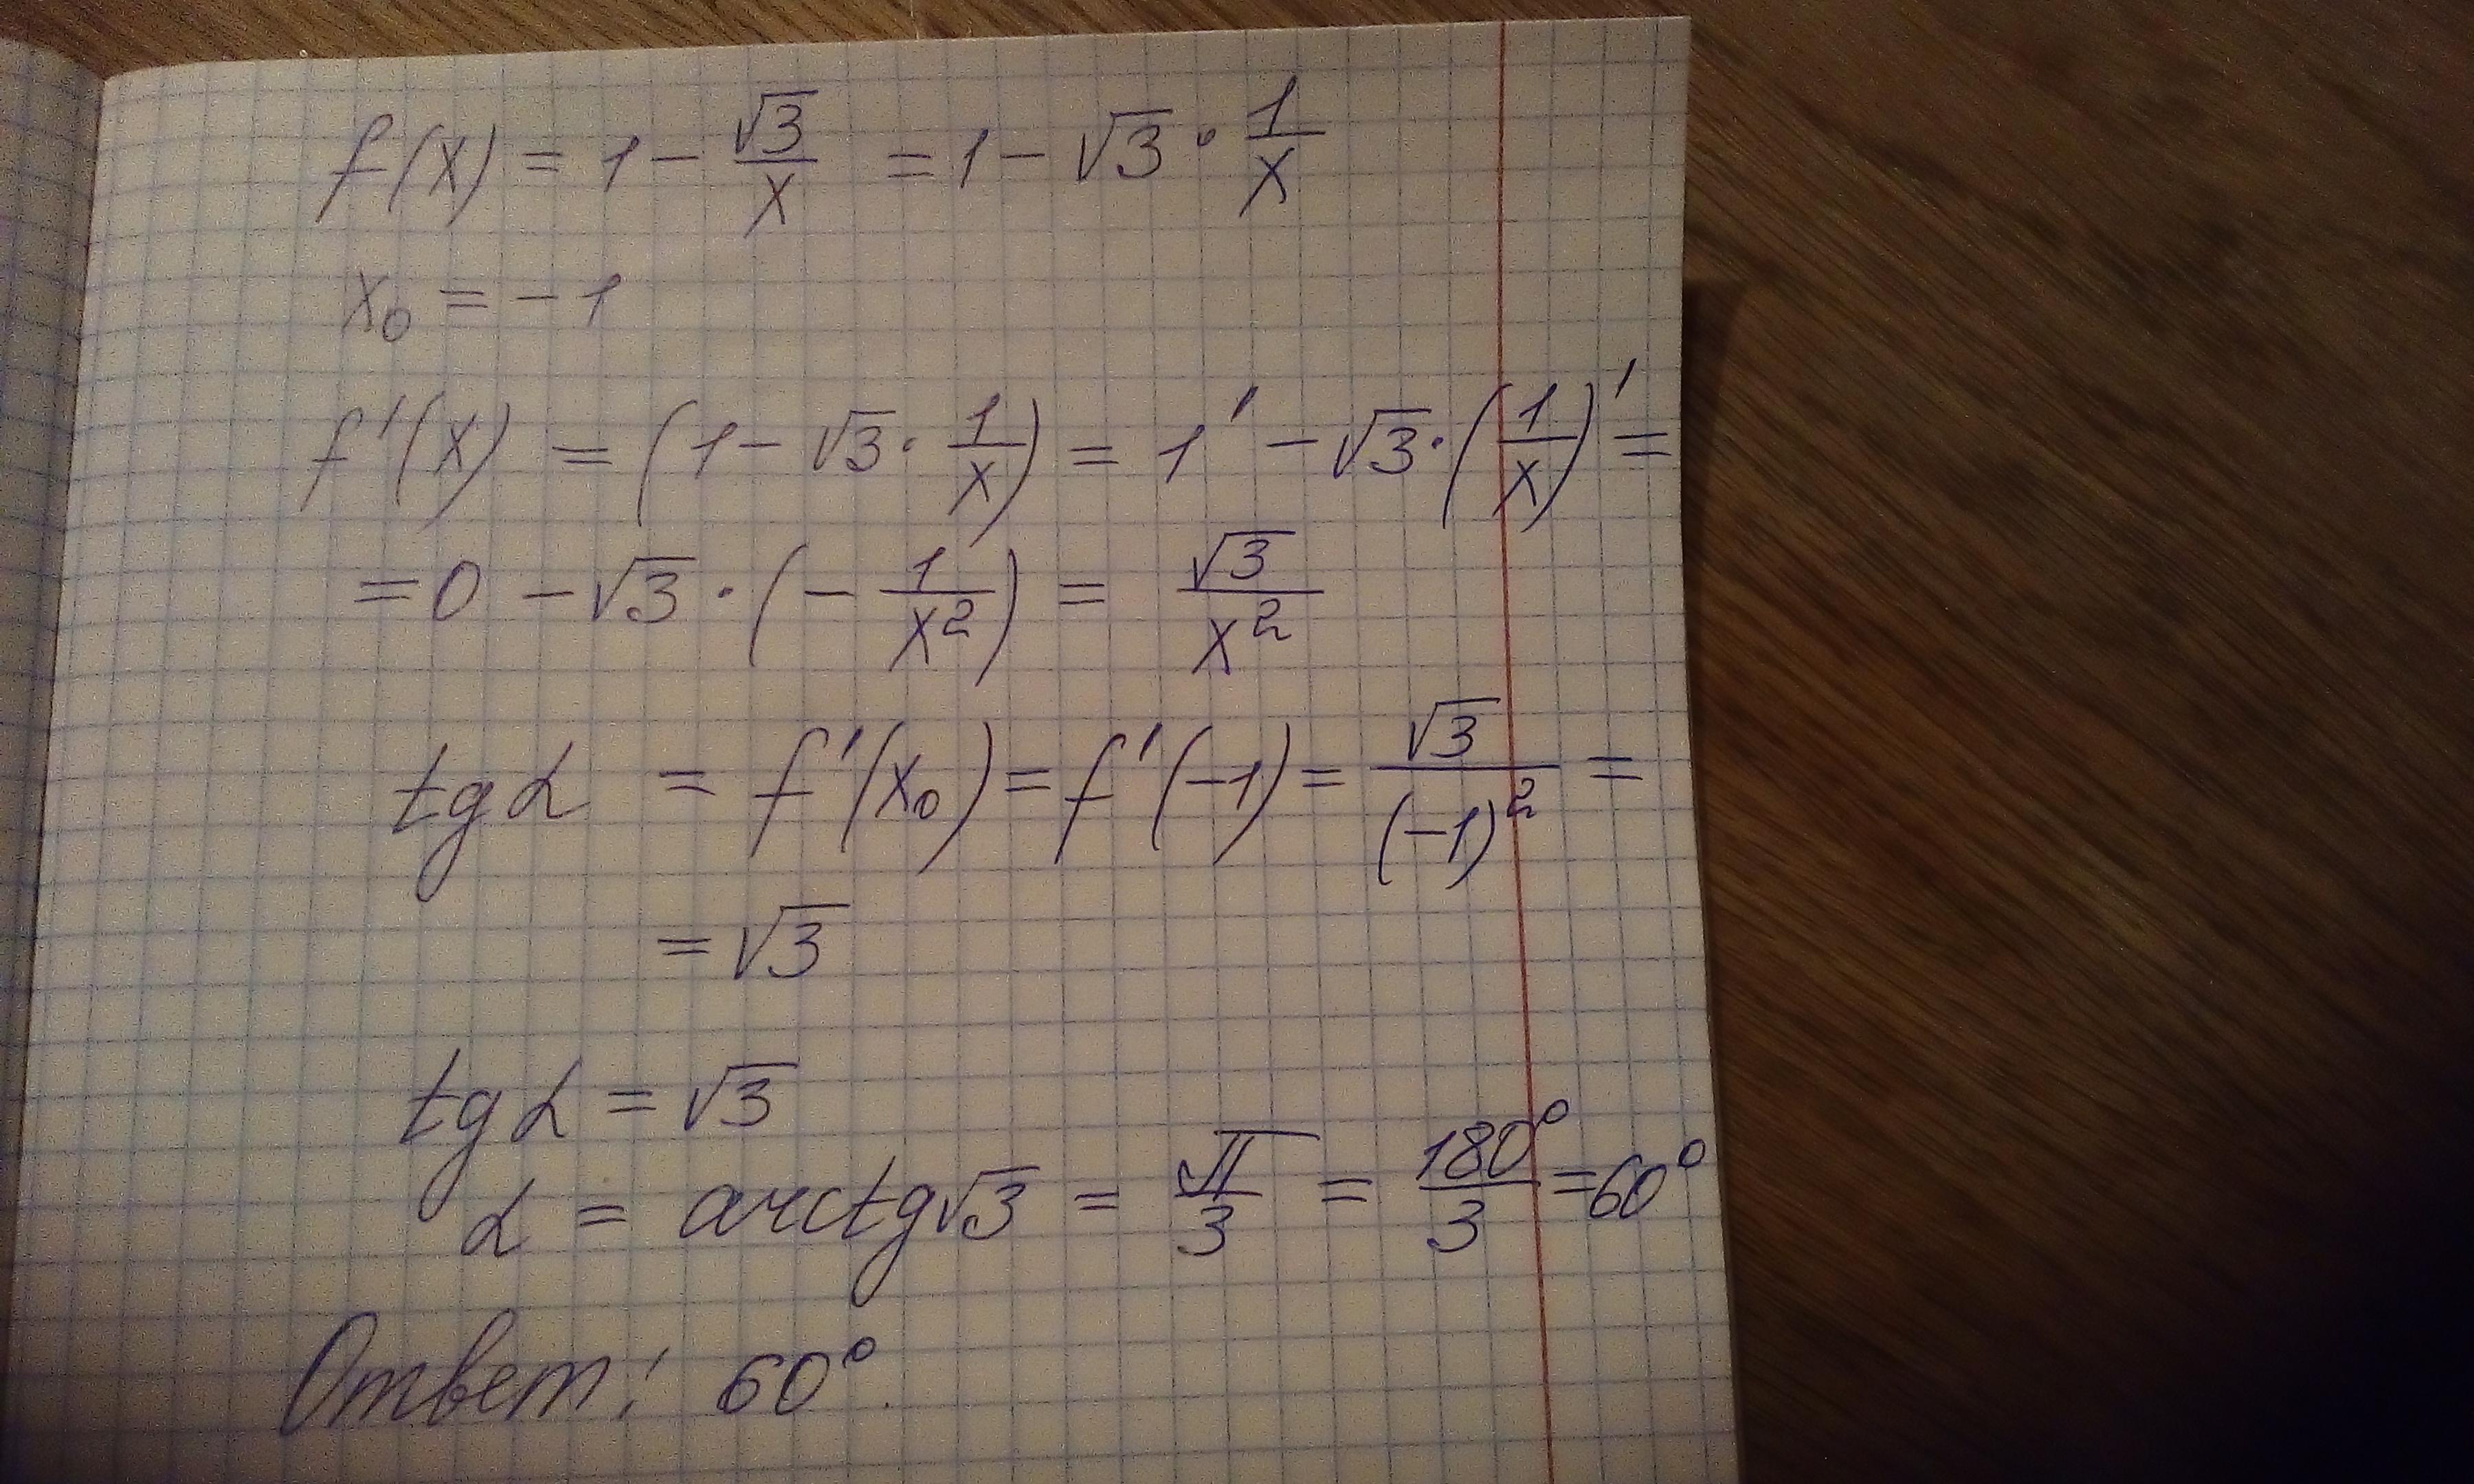 f(x) = 1 - √3/x = 1 - √3 · 1/x
x₀ = -1
f'(x) = (1 - √3 · 1/x) = 1' - √3 · (1/x)' =
= 0 - √3 · (- 1/x²) = √3/x²
tg α = f'(x₀) = f'(-1) = √3/(-1)² =
= √3
tg α = √3
α = arctg √3 = π/3 = 180°/3 = 60°
Ответ: 60°.